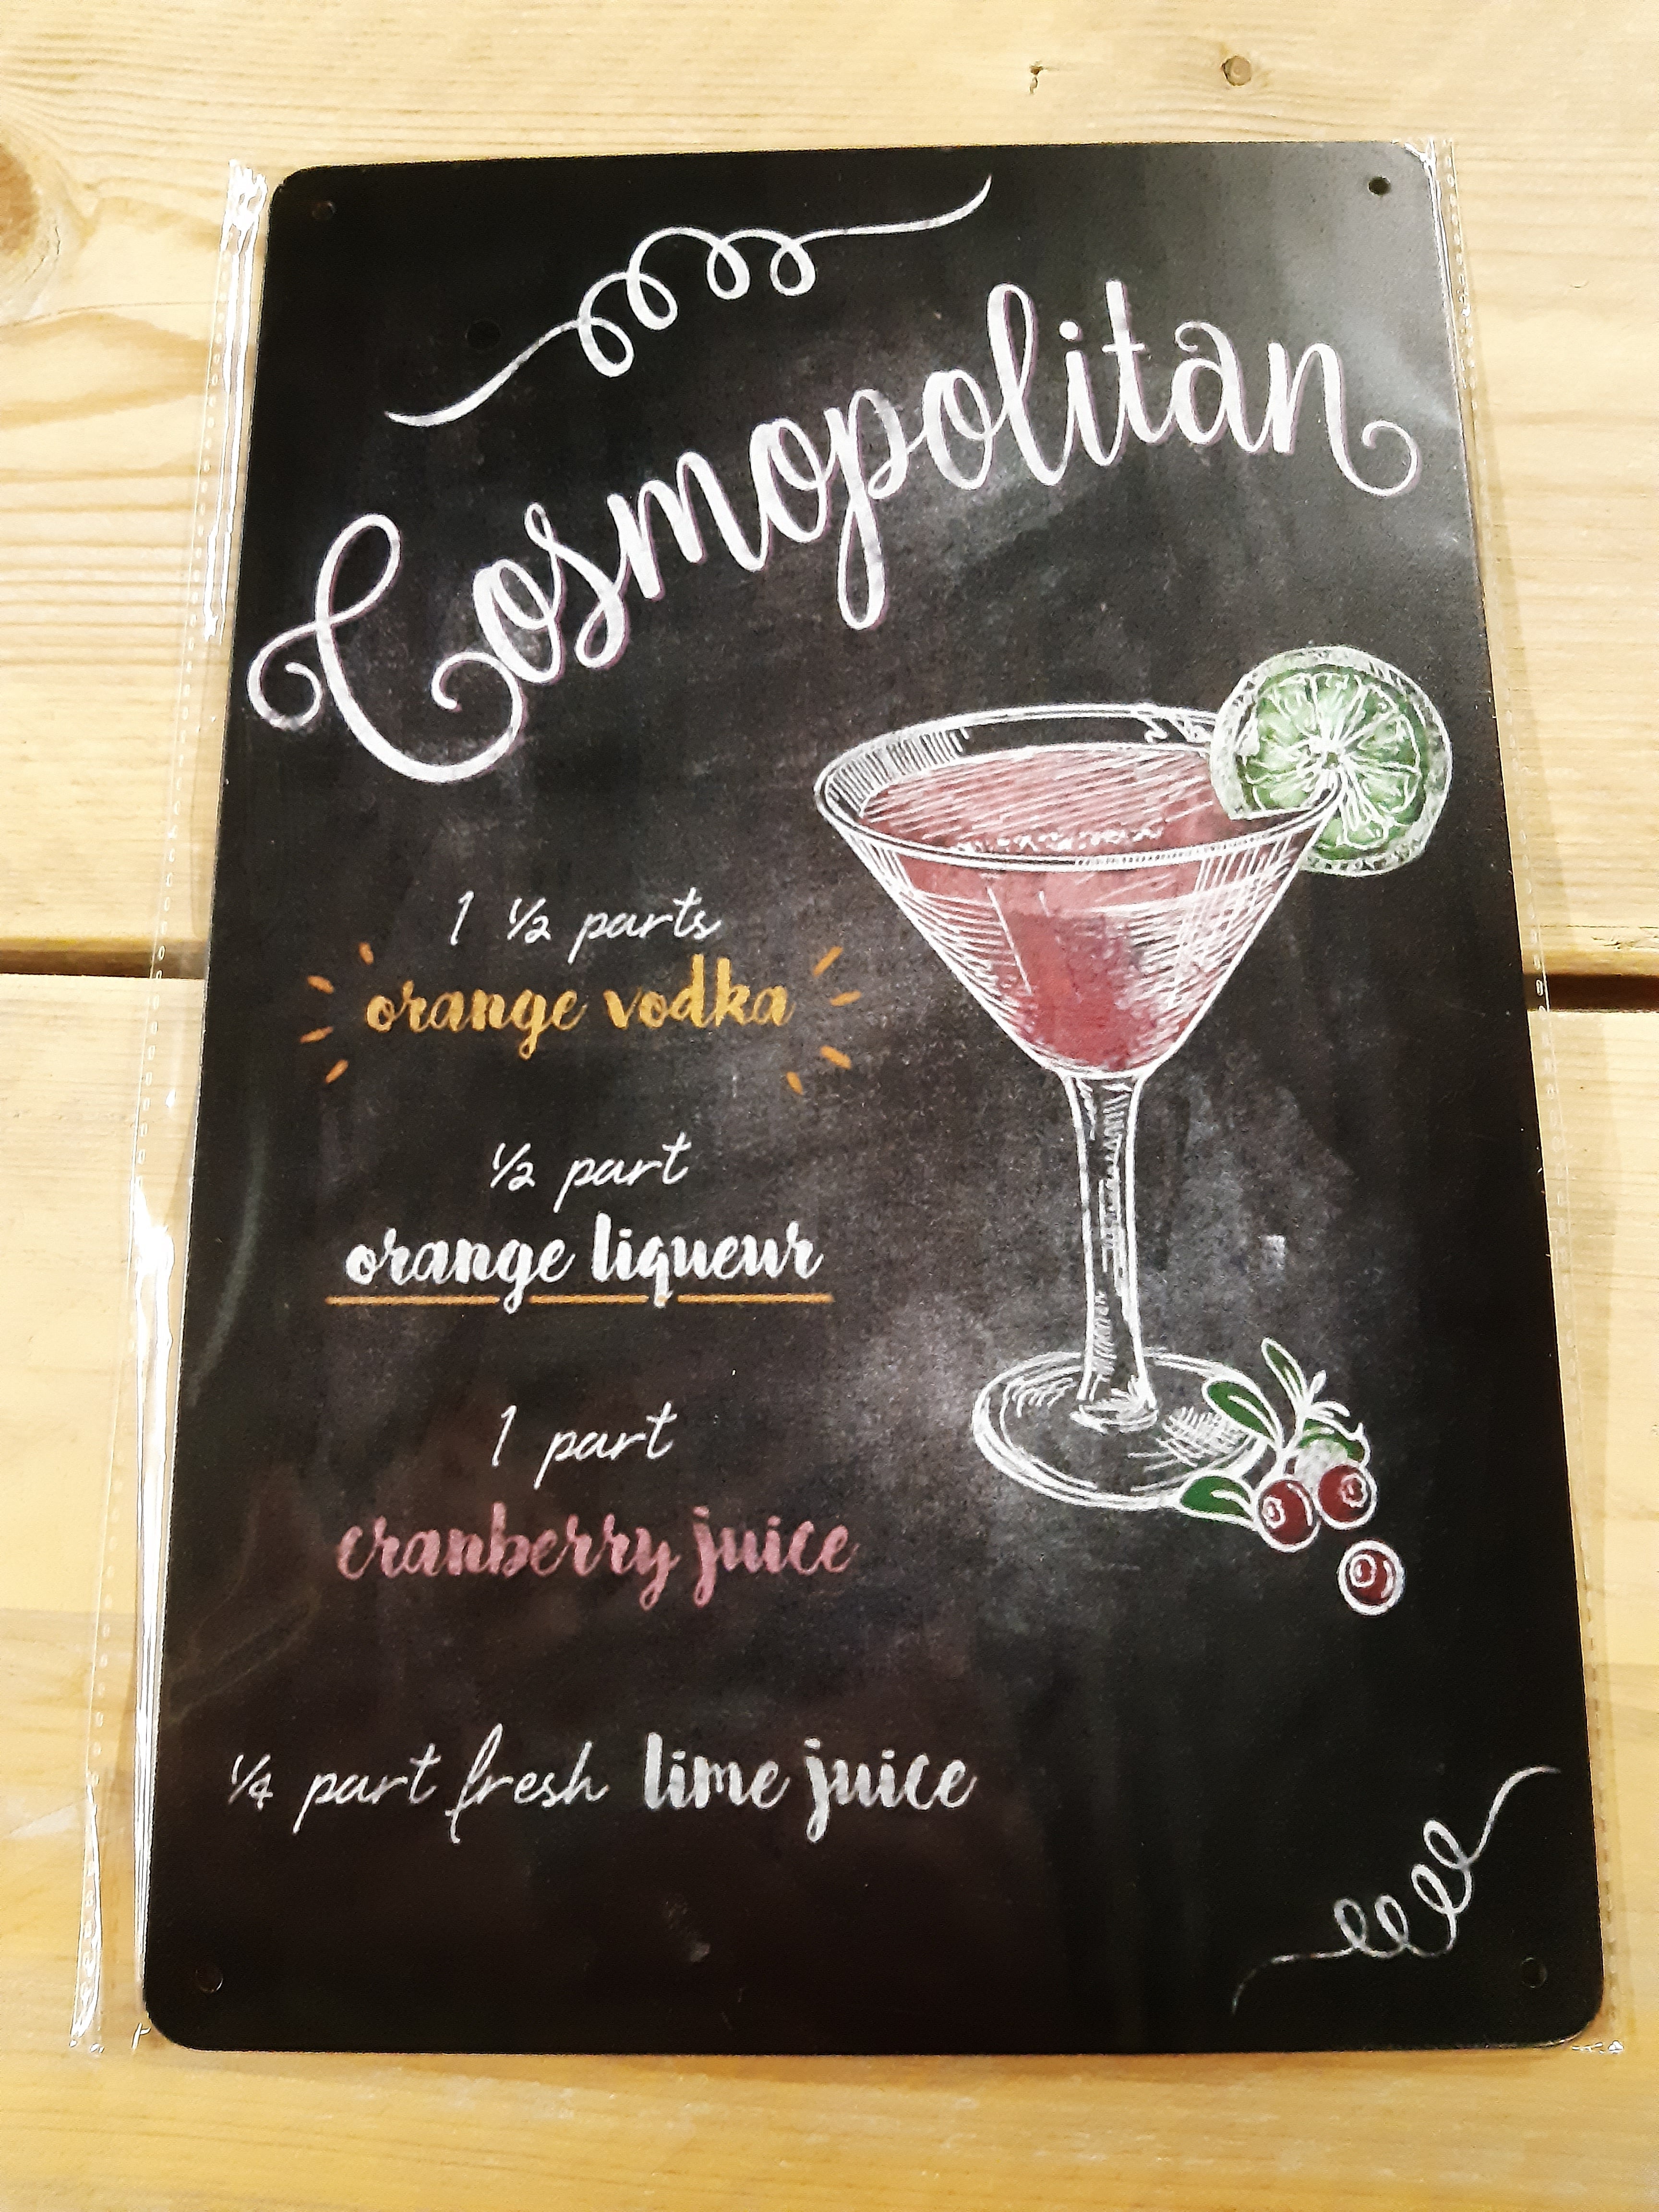 Cosmopolitan
1 ½ parts
orange vodka
½ part
orange liqueur
1 part
cranberry juice
¼ part fresh lime juice